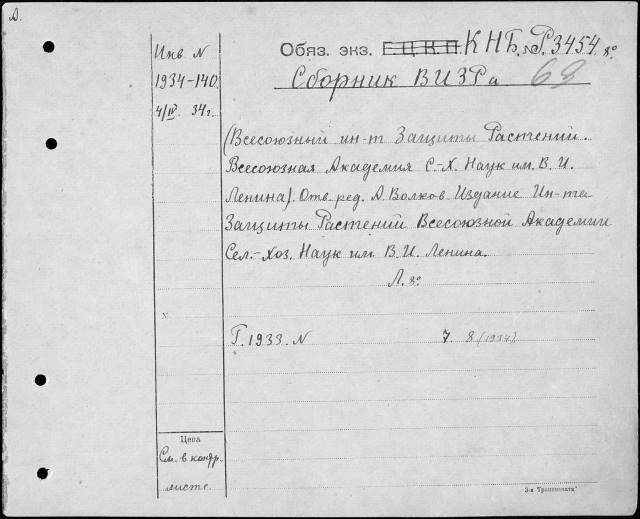 Д.
Инв N
1934-140.
4/IV 34г.
Обяз. экз. Г.Ц.К.П. КНБ. № Р.3454 8°
Сборник ВИЗРа 69
(Всесоюзный ин-т Защиты Растений.
Всесоюзная Академия С.-Х. Наук им. В. И.
Ленина). Отв. ред. А. Волков. Издание Ин-та
Защиты Растений Всесоюзной Академии
Сел.-Хоз. Наук им. В. И. Ленина.
Л. 8°
х
Г. 1933. N 7. 8 (1934)
Цена
См. в контр.
листе
3-я "Транспечати"